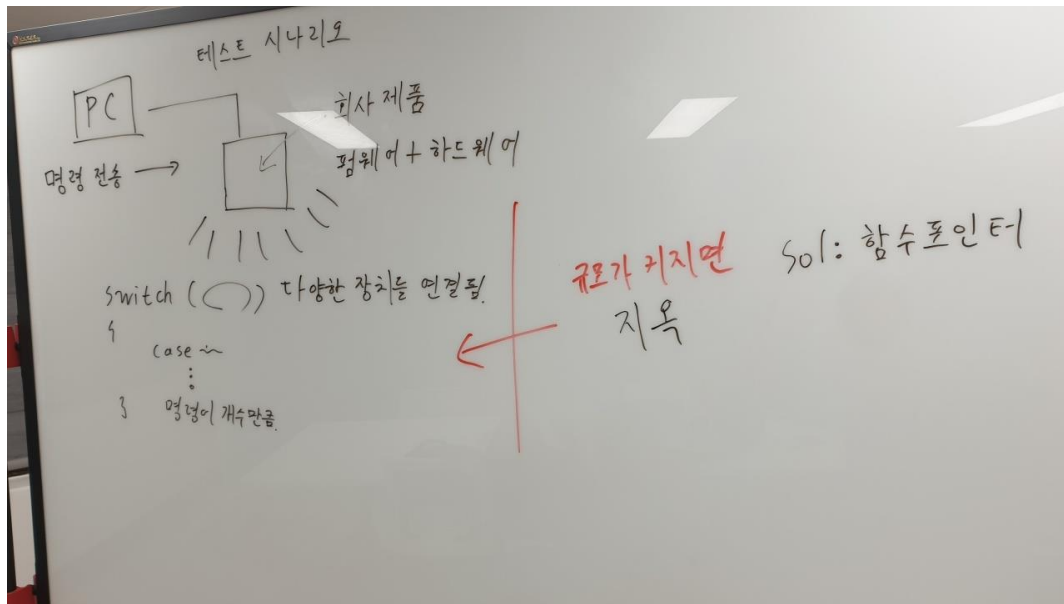 테스트 시나리오
PC
회사 제품
펌웨어 + 하드웨어
명령 전송 →
switch ( ) 다양한 장치를 연결됨.
{
case ~
⋮
} 명령어 개수만큼.
규모가 커지면
지옥
Sol: 함수포인터